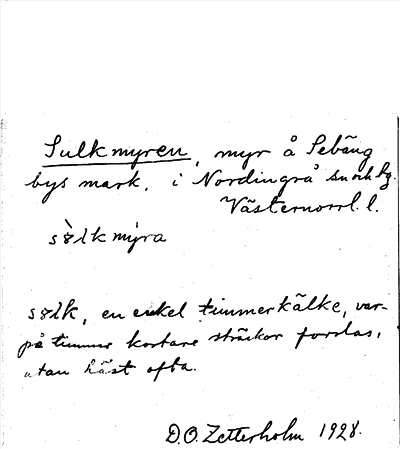 Sulkmyren, myr å Sebäng
bys mark, i Nordingrå snoch by.
Västernorrl. l.
sɵ̀lkmýra
sɵlk, en enkel timmerkälke, var-
på timmer kortare sträckor forslas,
utan häst ofta.
D.O. Zetterholm 1928.